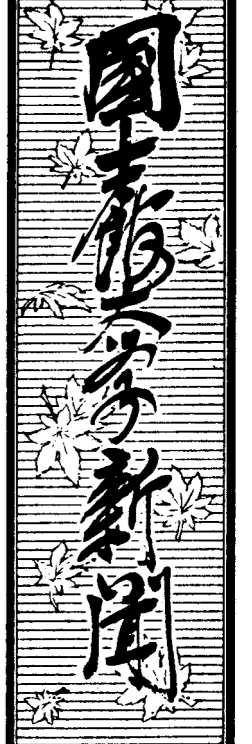 國士舘大学新聞